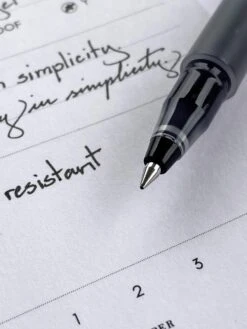 OOF
simplicity
in simplicity.
resistant
1 2 3
BER